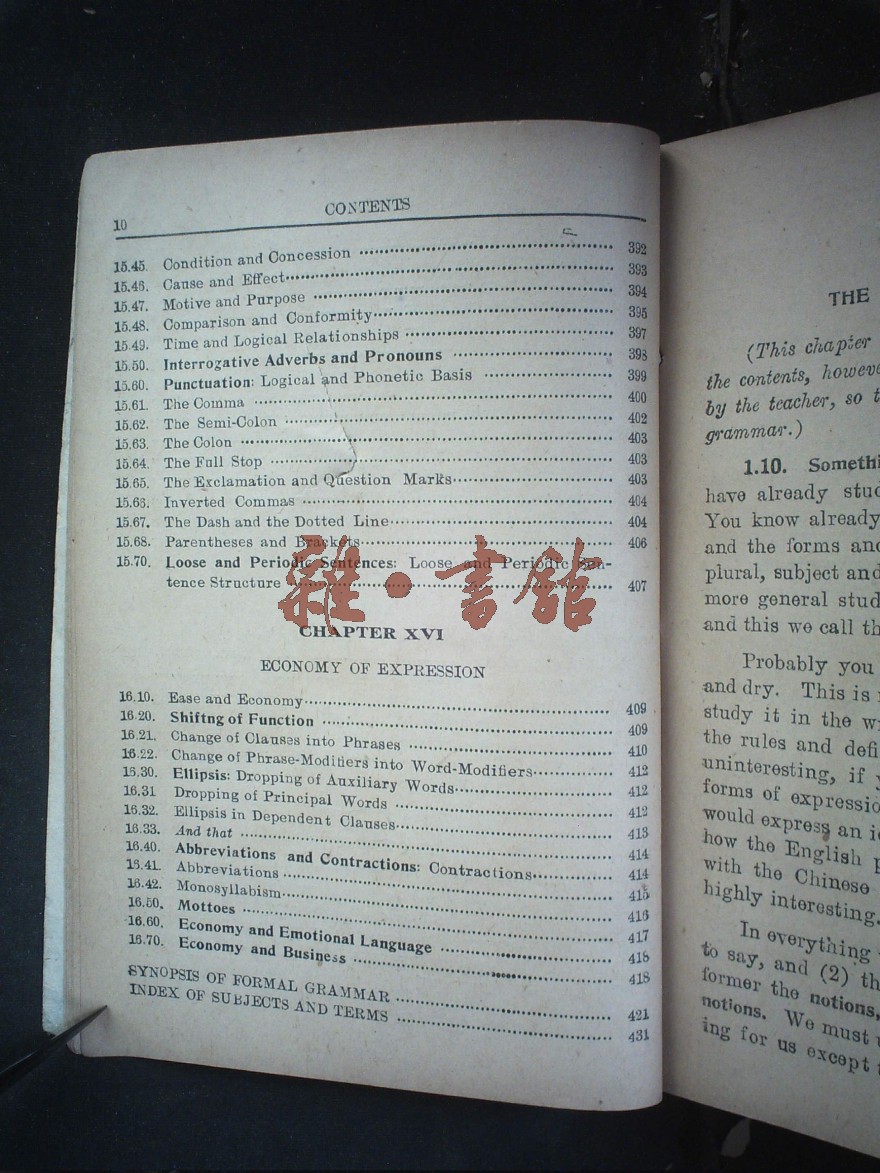 10
CONTENTS
15.45. Condition and Concession 392
15.46. Cause and Effect 393
15.47. Motive and Purpose 394
15.48. Comparison and Conformity 395
15.49. Time and Logical Relationships 397
15.50. Interrogative Adverbs and Pronouns 398
15.60. Punctuation: Logical and Phonetic Basis 399
15.61. The Comma 400
15.62. The Semi-Colon 402
15.63. The Colon 403
15.64. The Full Stop 403
15.65. The Exclamation and Question Marks 403
15.66. Inverted Commas 404
15.67. The Dash and the Dotted Line 404
15.68. Parentheses and Brackets 406
15.70. Loose and Periodic Sentences: Loose and Periodic Sen-
tence Structure 407
雜·書館
CHAPTER XVI
ECONOMY OF EXPRESSION
16.10. Ease and Economy 409
16.20. Shiftng of Function 409
16.21. Change of Clauses into Phrases 410
16.22. Change of Phrase-Modifiers into Word-Modifiers 412
16.30. Ellipsis: Dropping of Auxiliary Words 412
16.31 Dropping of Principal Words 412
16.32. Ellipsis in Dependent Clauses 413
16.33. And that 414
16.40. Abbreviations and Contractions: Contractions 414
16.41. Abbreviations 415
16.42. Monosyllabism 416
16.50. Mottoes 417
16.60. Economy and Emotional Language 418
16.70. Economy and Business 418
SYNOPSIS OF FORMAL GRAMMAR 421
INDEX OF SUBJECTS AND TERMS 431
THE
(This chapter
the contents, howeve
by the teacher, so t
grammar.)
1.10. Somethi
have already stud
You know already
and the forms and
plural, subject and
more general stud
and this we call th
Probably you
and dry. This is
study it in the w
the rules and defi
uninteresting, if y
forms of expressio
would express an i
how the English p
with the Chinese
highly interesting.
In everything
to say, and (2) th
former the notions,
notions. We must
ing for us except